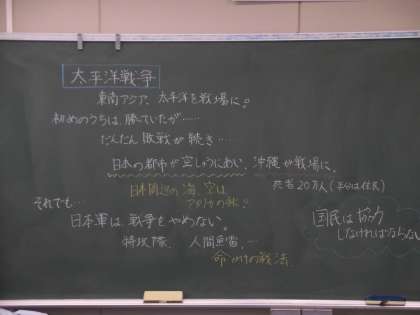 太平洋戦争
東南アジア、太平洋を戦場に。
初めのうちは勝っていたが……
だんだん敗戦が続き…
日本の都市が空しゅうにあい、沖縄が戦場に。
死者20万人(半分は住民)
日本周辺の海、空は
アメリカの私?
それでも…
日本軍は戦争をやめない。
特攻隊、人間魚雷、…
命がけの戦法
国民は
しなければならない